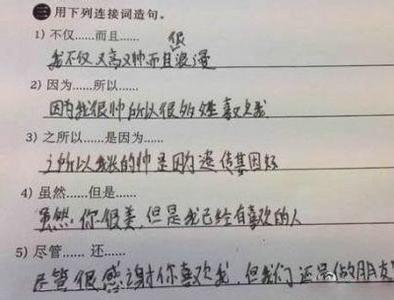 三 用下列连接词造句。
1) 不仅……而且……
很
我不仅又高又帅而且浪漫
2) 因为……所以……
因为我很帅所以很多姓喜欢我
3) 之所以……是因为……
之所以我长的帅是因为遗传基因好
4) 虽然……但是……
虽然你很美,但是我已经有喜欢的人
5) 尽管…… 还……
尽管很感谢你喜欢我,但我们还是做朋友